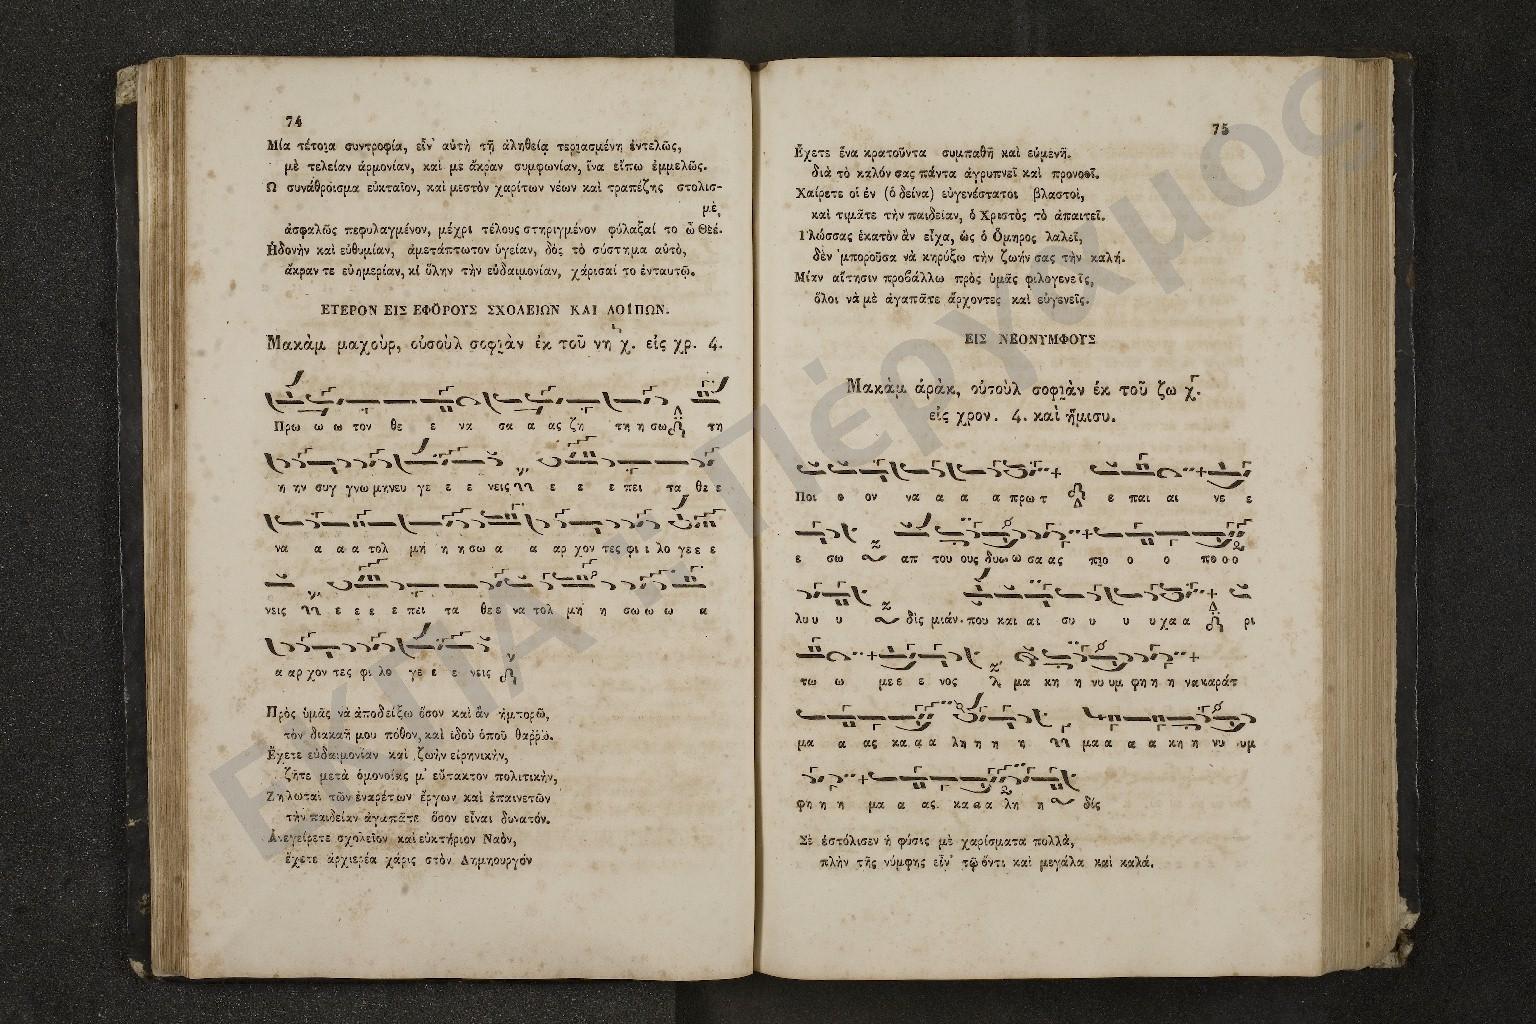 74
Μία τέτοια συντροφία, εἶν' αὐτὴ τῇ ἀληθείᾳ τεριασμένη ἐντελῶς,
μὲ τελείαν ἁρμονίαν, καὶ με ἄκραν συμφωνίαν, ἵνα εἴπω ἐμμελῶς.
Ω συνάθροισμα εὐκταῖον, καὶ μεστὸν χαρίτων νέων καὶ τραπέζης στολισ-
μὲ,
ἀσφαλῶς πεφυλαγμένον, μέχρι τέλους στηριγμένον φύλαξαί το ὦ Θεέ.
Ηδονὴν καὶ εὐθυμίαν, ἀμετάπτωτον ὑγείαν, δὸς τὸ σύστημα αὐτὸ,
ἄκραν τε εὐημερίαν, κἰ ὅλην τὴν εὐδαιμονίαν, χάρισαί το ἐνταυτῷ.
ΕΤΕΡΟΝ ΕΙΣ ΕΦΟΡΟΥΣ ΣΧΟΛΕΙΩΝ ΚΑΙ ΛΟΙΠΩΝ.
Μακὰμ μαχοὺρ, οὐσοὺλ σοφιὰν ἐκ τοῦ νη χ. εἰς χρ. 4.
Πρω ω ω τον θε ε να σα α ας ζη τη η σω τη
η ην συγ γνω μην ευ γε ε ε νεις ε ε ε πει τα θε ε
να α α α τολ μή η η σω α α αρ χον τες φι ι λο γε ε ε
νεις ε ε ε ε πει τα θε ε να τολ μή η σω ω ω α
α αρ χον τες φι λο γε ε ε νεις
Πρὸς ὑμᾶς νὰ ἀποδείξω ὅσον καὶ ἂν ἠμπορῶ,
τὸν διακαῆ μου πόθον, καὶ ἰδοὺ ὁποῦ θαῤῥῶ.
Ἔχετε εὐδαιμονίαν καὶ ζωὴν εἰρηνικὴν,
ζῆτε μετὰ ὁμονοίας μ' εὔτακτον πολιτικὴν,
Ζηλωταὶ τῶν ἐναρέτων ἔργων καὶ ἐπαινετῶν
τὴν παιδείαν ἀγαπᾶτε ὅσον εἶναι δυνατόν.
Ἀνεγείρετε σχολεῖον καὶ εὐκτήριον Ναὸν,
ἔχετε ἀρχιερέα χάρις στὸν Δημιουργόν
75
Ἔχετε ἕνα κρατοῦντα συμπαθῆ καὶ εὐμενῆ.
διὰ τὸ καλόν σας πάντα ἀγρυπνεῖ καὶ προνοεῖ.
Χαίρετε οἱ ἐν (ὁ δείνα) εὐγενέστατοι βλαστοὶ,
καὶ τιμᾶτε τὴν παιδείαν, ὁ Χριστὸς τὸ ἀπαιτεῖ.
Γλώσσας ἑκατὸν ἂν εἶχα, ὡς ὁ Ὅμηρος λαλεῖ,
δὲν 'μποροῦσα νὰ κηρύξω τὴν ζωήν σας τὴν καλή.
Μίαν αἴτησιν προβάλλω πρὸς ὑμᾶς φιλογενεῖς,
ὅλοι νὰ μὲ ἀγαπᾶτε ἄρχοντες καὶ εὐγενεῖς.
ΕΙΣ ΝΕΟΝΥΜΦΟΥΣ
Μακὰμ ἀρὰκ, οὐσοὺλ σοφιὰν ἐκ τοῦ ζω χ.
εἰς χρον. 4. καὶ ἥμισυ.
Ποι ο ον να α α α πρω τ ε παι αι νε ε
ε σω απ του ους δυω ω σα ας πιο ο ο πο ο ο
λυ υ υ δίς μιάν που και αι συ υ υ υ χα α ρι
τω ω με ε ε νος μα κη η νυ υμ φη η η να καράτ
μα α ας κα α α λη η η η μα α α α κη η νυ υμ
φη η η μα α ας κα α α λη η δίς
Σὲ ἐστόλισεν ἡ φύσις μὲ χαρίσματα πολλὰ,
πλὴν τῆς νύμφης εἶν' τῷ ὄντι καὶ μεγάλα καὶ καλά.